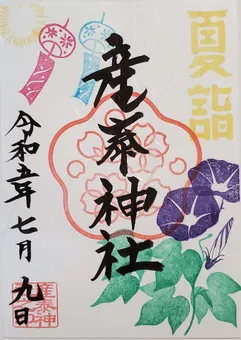 夏詣
産泰神社
令和五年七月九日
産泰神